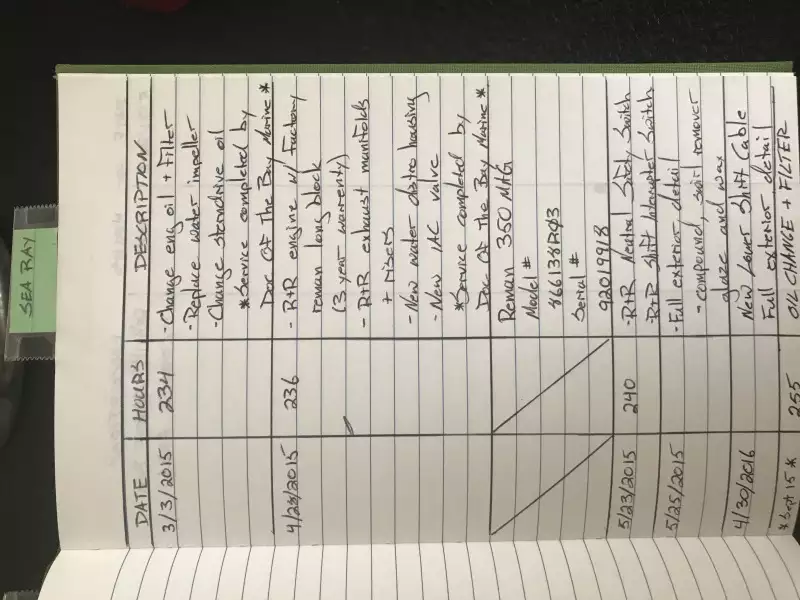 SEA RAY
DATE HOURS DESCRIPTION
3/3/2015 234 - Change eng oil + Filter
- Replace water impeller
- Change sterndrive oil
*Service completed by
Doc Of The Bay Marine*
4/23/2015 236 - R+R engine w/ Factory
reman long block
(3 year warrenty)
- R+R exhaust manifolds
+ risers
- New water distro housing
- New IAC valve
*Service completed by
Doc Of The Bay Marine*
Reman 350 MAG
Model #
866138R03
Serial #
92019918
5/23/2015 240 - R+R Neutral Safty Switch
- R+R Shift Interupter Switch
5/25/2015 - Full exterior detail
- compound, swirl remover
glaze and wax
4/30/2016 New Lower Shift Cable
Full exterior detail
*Sept 15* 255 OIL CHANGE + FILTER